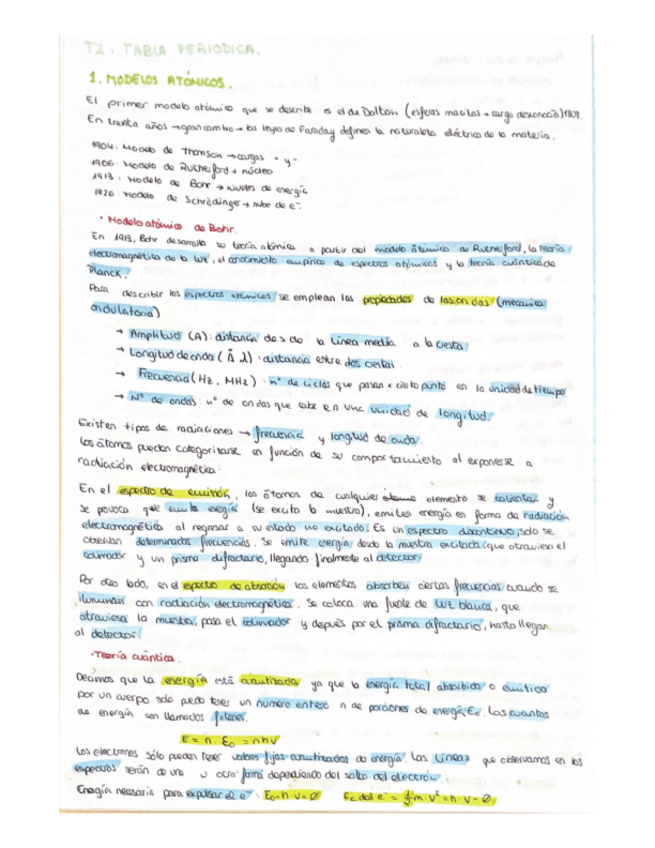 T2: TABLA PERIODICA.
1. MODELOS ATÓMICOS.
El primer modelo atómico que se describe es el de Dalton (esferas macizas → carga desconocida) 1808.
En treinta años → gran cambio → las leyes de Faraday definen la naturaleza eléctrica de la materia.
1904. Modelo de Thomson → cargas + y -
1906. Modelo de Rutherford → núcleo
1913. Modelo de Bohr → niveles de energía
1926. Modelo de Schrödinger → nube de e⁻.
· Modelo atómico de Bohr.
En 1913, Bohr desarrolla su teoría atómica a partir del modelo atómico de Rutherford, la teoría
electromagnética de la luz, el conocimiento empírico de espectros atómicos y la teoría cuántica de
Planck.
Para describir los espectros atómicos se emplean las propiedades de las ondas (mecánica
ondulatoria)
→ Amplitud (A): distancia desde la línea media a la cresta.
→ Longitud de onda (Å λ): distancia entre dos crestas.
→ Frecuencia (Hz, MHz): nº de ciclos que pasan x cierto punto en la unidad de tiempo
→ Nº de ondas: nº de ondas que cabe en una unidad de longitud.
Existen tipos de radiaciones → frecuencia y longitud de onda.
Los átomos pueden categorizarse en función de su comportamiento al exponerse a
radiación electromagnética.
En el espectro de emisión, los átomos de cualquier elemento se calientan y
se provoca que emita energía (se excita la muestra), emiten energía en forma de radiación
electromagnética al regresar a su estado no excitado. Es un espectro discontinuo, solo se
observan determinadas frecuencias. Se emite energía desde la muestra excitada, que atraviesa el
colimador y un prisma difractario, llegando finalmente al detector.
Por otro lado, en el espectro de absorción los elementos absorben ciertas frecuencias cuando se
iluminan con radiación electromagnética. Se coloca una fuente de luz blanca, que
atraviesa la muestra, pasa el colimador y depués por el prisma difractario, hasta llegar
al detector.
· Teoría cuántica.
Decimos que la energía está cuantizada ya que la energía total absorbida o emitida
por un cuerpo solo puede tener un numero entero n de porciones de energía, E₀. Los cuantos
de energía son llamados fotones.
E = n · E₀ = nhν
Los electrones sólo pueden tener valores fijos cuantizados de energía. Las líneas que observamos en los
espectros serán de una u otra forma dependiendo del salto del electrón.
Energía necesaria para expulsar el e⁻: E₀ = h · ν = Ø Ec del e⁻ = ½ m · v² = h · ν - Ø